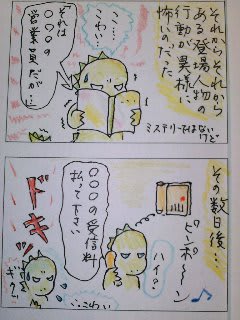 それからそれから
ある登場人物の
行動が異様に
怖いのだった
ミステリーではない
けど
こ…
こわい
それは
〇〇〇の
営業員だが…
その数日後…
ピンポーン
ハイ?
〇〇〇の受信料
払って下さい
ドキッ
ギクッ
こわい